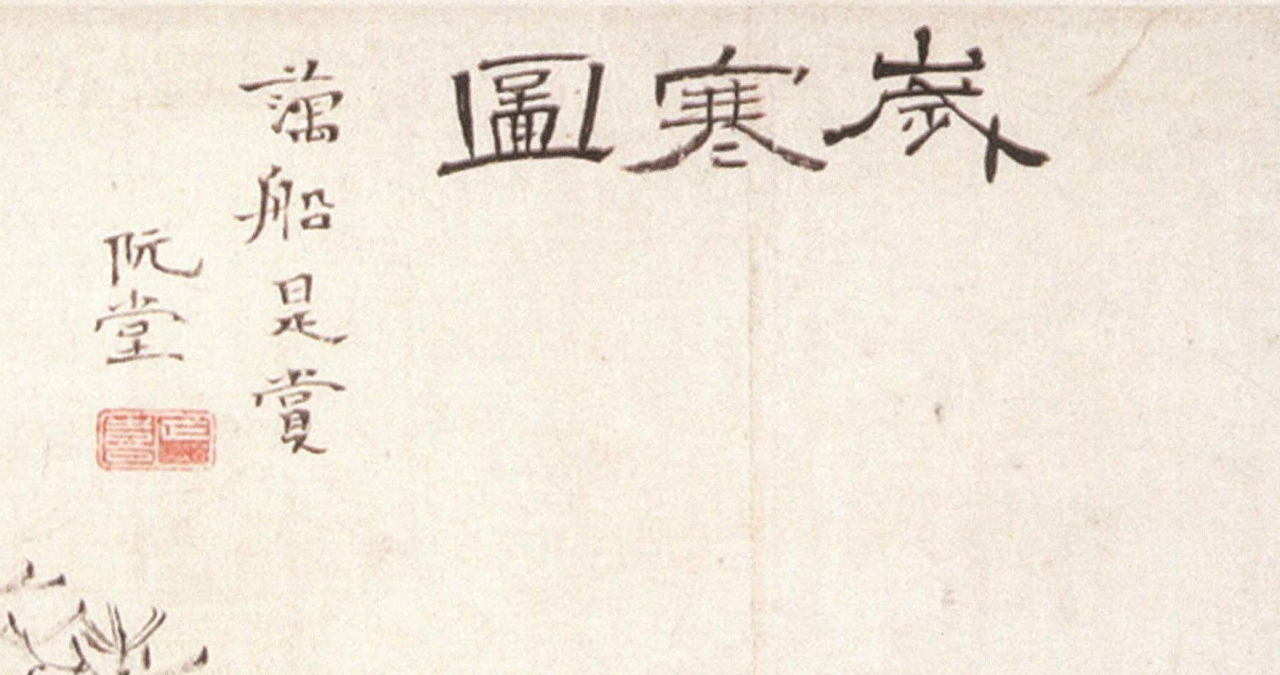 歲寒圖
藕船是賞
阮堂